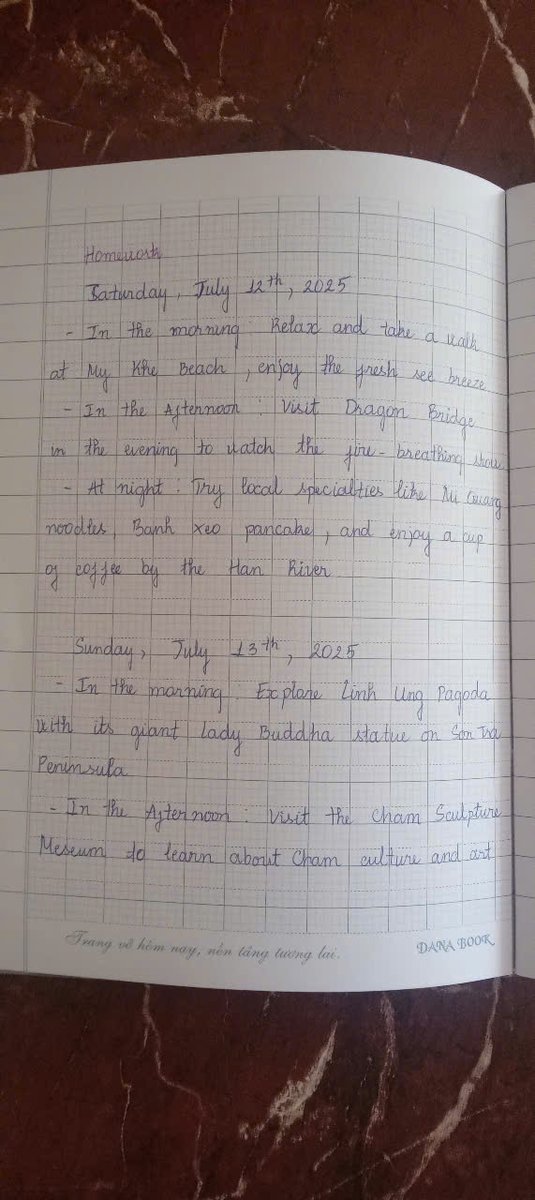 Homework
Saturday, July 12th, 2025
- In the morning Relax and take a walk
at My Khe Beach, enjoy the fresh see breeze
- In the Afternoon : Visit Dragon Bridge
in the evening to watch the fire-breathing show
- At night : Try local specialties like Mi Quang
noodles, Banh xeo pancake, and enjoy a cup
of coffee by the Han River
Sunday, July 13th, 2025
- In the morning : Explore Linh Ung Pagoda
with its giant lady Buddha statue on Son Tra
Peninsula
- In the Afternoon : Visit the Cham Sculpture
Meseum to learn about Cham culture and art
Trang vở hôm nay, nền tảng tương lai.
DANA BOOK